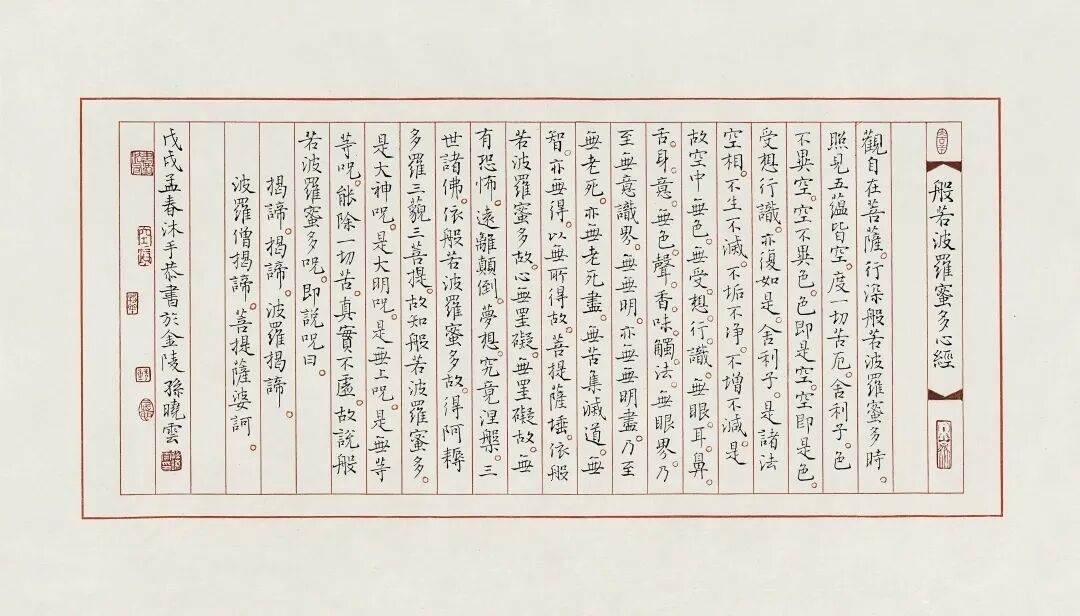 般若波羅蜜多心經
觀自在菩薩。行深般若波羅蜜多時。
照見五蘊皆空。度一切苦厄。舍利子。色
不異空。空不異色。色即是空。空即是色。
受想行識。亦復如是。舍利子。是諸法
空相。不生不滅。不垢不淨。不增不減。是
故空中無色。無受。想。行。識。無眼。耳。鼻。
舌。身。意。無色。聲。香。味。觸。法。無眼界。乃
至無意識界。無無明。亦無無明盡。乃至
無老死。亦無老死盡。無苦集滅道。無
智。亦無得。以無所得故。菩提薩埵。依般
若波羅蜜多故。心無罣礙。無罣礙故。無
有恐怖。遠離顛倒。夢想。究竟涅槃。三
世諸佛。依般若波羅蜜多故。得阿耨
多羅三藐三菩提。故知般若波羅蜜多。
是大神呪。是大明呪。是無上呪。是無等
等呪。能除一切苦。真實不虛。故說般
若波羅蜜多呪。即說呪曰。
揭諦。揭諦。波羅揭諦。
波羅僧揭諦。菩提薩婆訶。
戊戌孟春沐手恭書於金陵孫曉雲